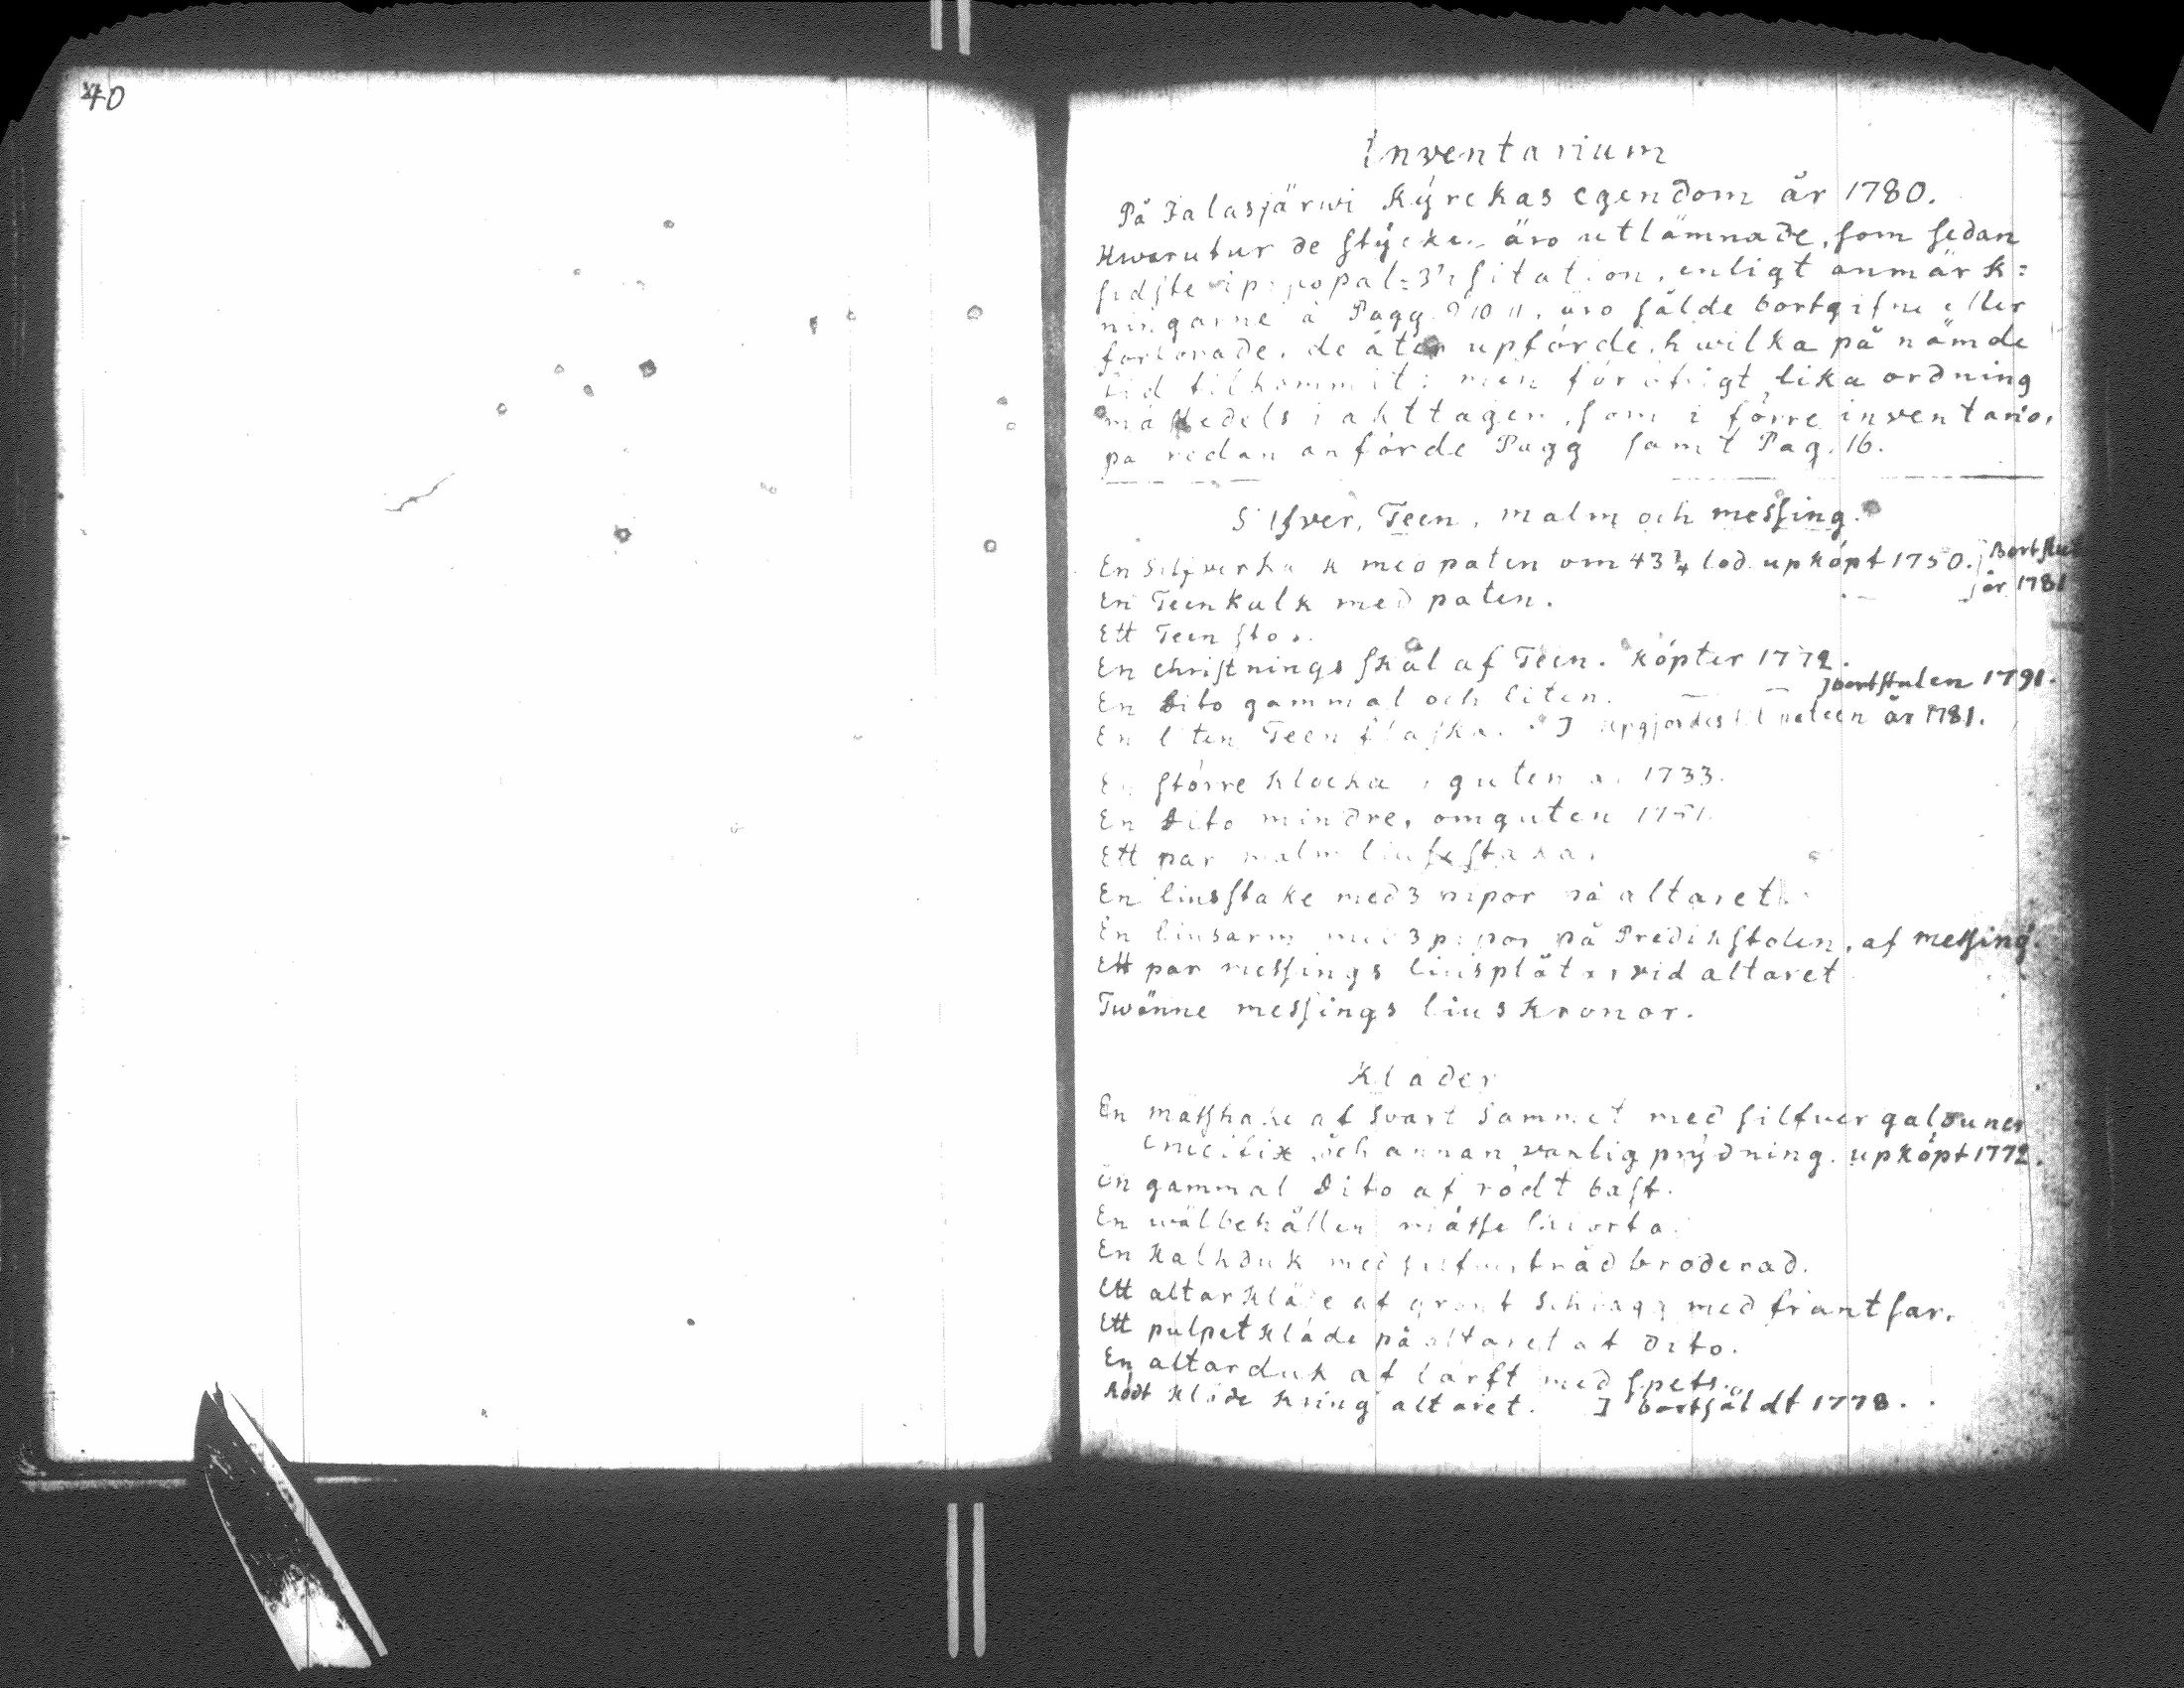 40
Inventarium
På Jalasjärwi Kÿrckas egendom år 1780.
Hwarutur de stÿcken äro utlämnade, som sedan
sidste visitation, enligt anmärk=
ningarne å Pagg. 9 10 11, äro sålde bortgifne eller
forlorade, de åter upförde, hwilka på nämde
tid tilkommit: men för öfrigt lika ordning
måttedels i akttagen, som i förre inventario,
på redan anförde Pagg samt Pag. 16.
Silfver, Teen, malm och messing.
En Silfverkalk med paten om 43 3/4 lod. upköpt 1750. Bortstul
En Teenkalk med paten. år 1781
Ett Teenstop.
En christnings skål af Teen. köpter 1772.
En dito gammal och liten. bortstulen 1791.
En liten Teen flaska. upgjordes til år 1781.
En större klocka, guten a. 1733.
En dito mindre, omguten 1751.
Ett par malm liusstakar
En liusstake med 3 pipor på altaret
En liusarm med 3 pipor på Predikstolen, af messing.
Ett par messings liusplåtar vid altaret
Twänne messings liuskronor.
Kläder
En mässhake af svart Sammet med silfver galouner
crucifix och annan vanlig prÿdning. upköpt 1772.
En gammal dito af rödt bast.
En wälbehållen mässe skiorta.
En Kalkduk med silfvertråd broderad.
Ett altarkläde af grönt Schagg med frantsar.
Ett pulpetkläde på altaret af dito.
En altarduk af lärft med spets.
Rödt kläde kring altaret. bortsåldt 1778.